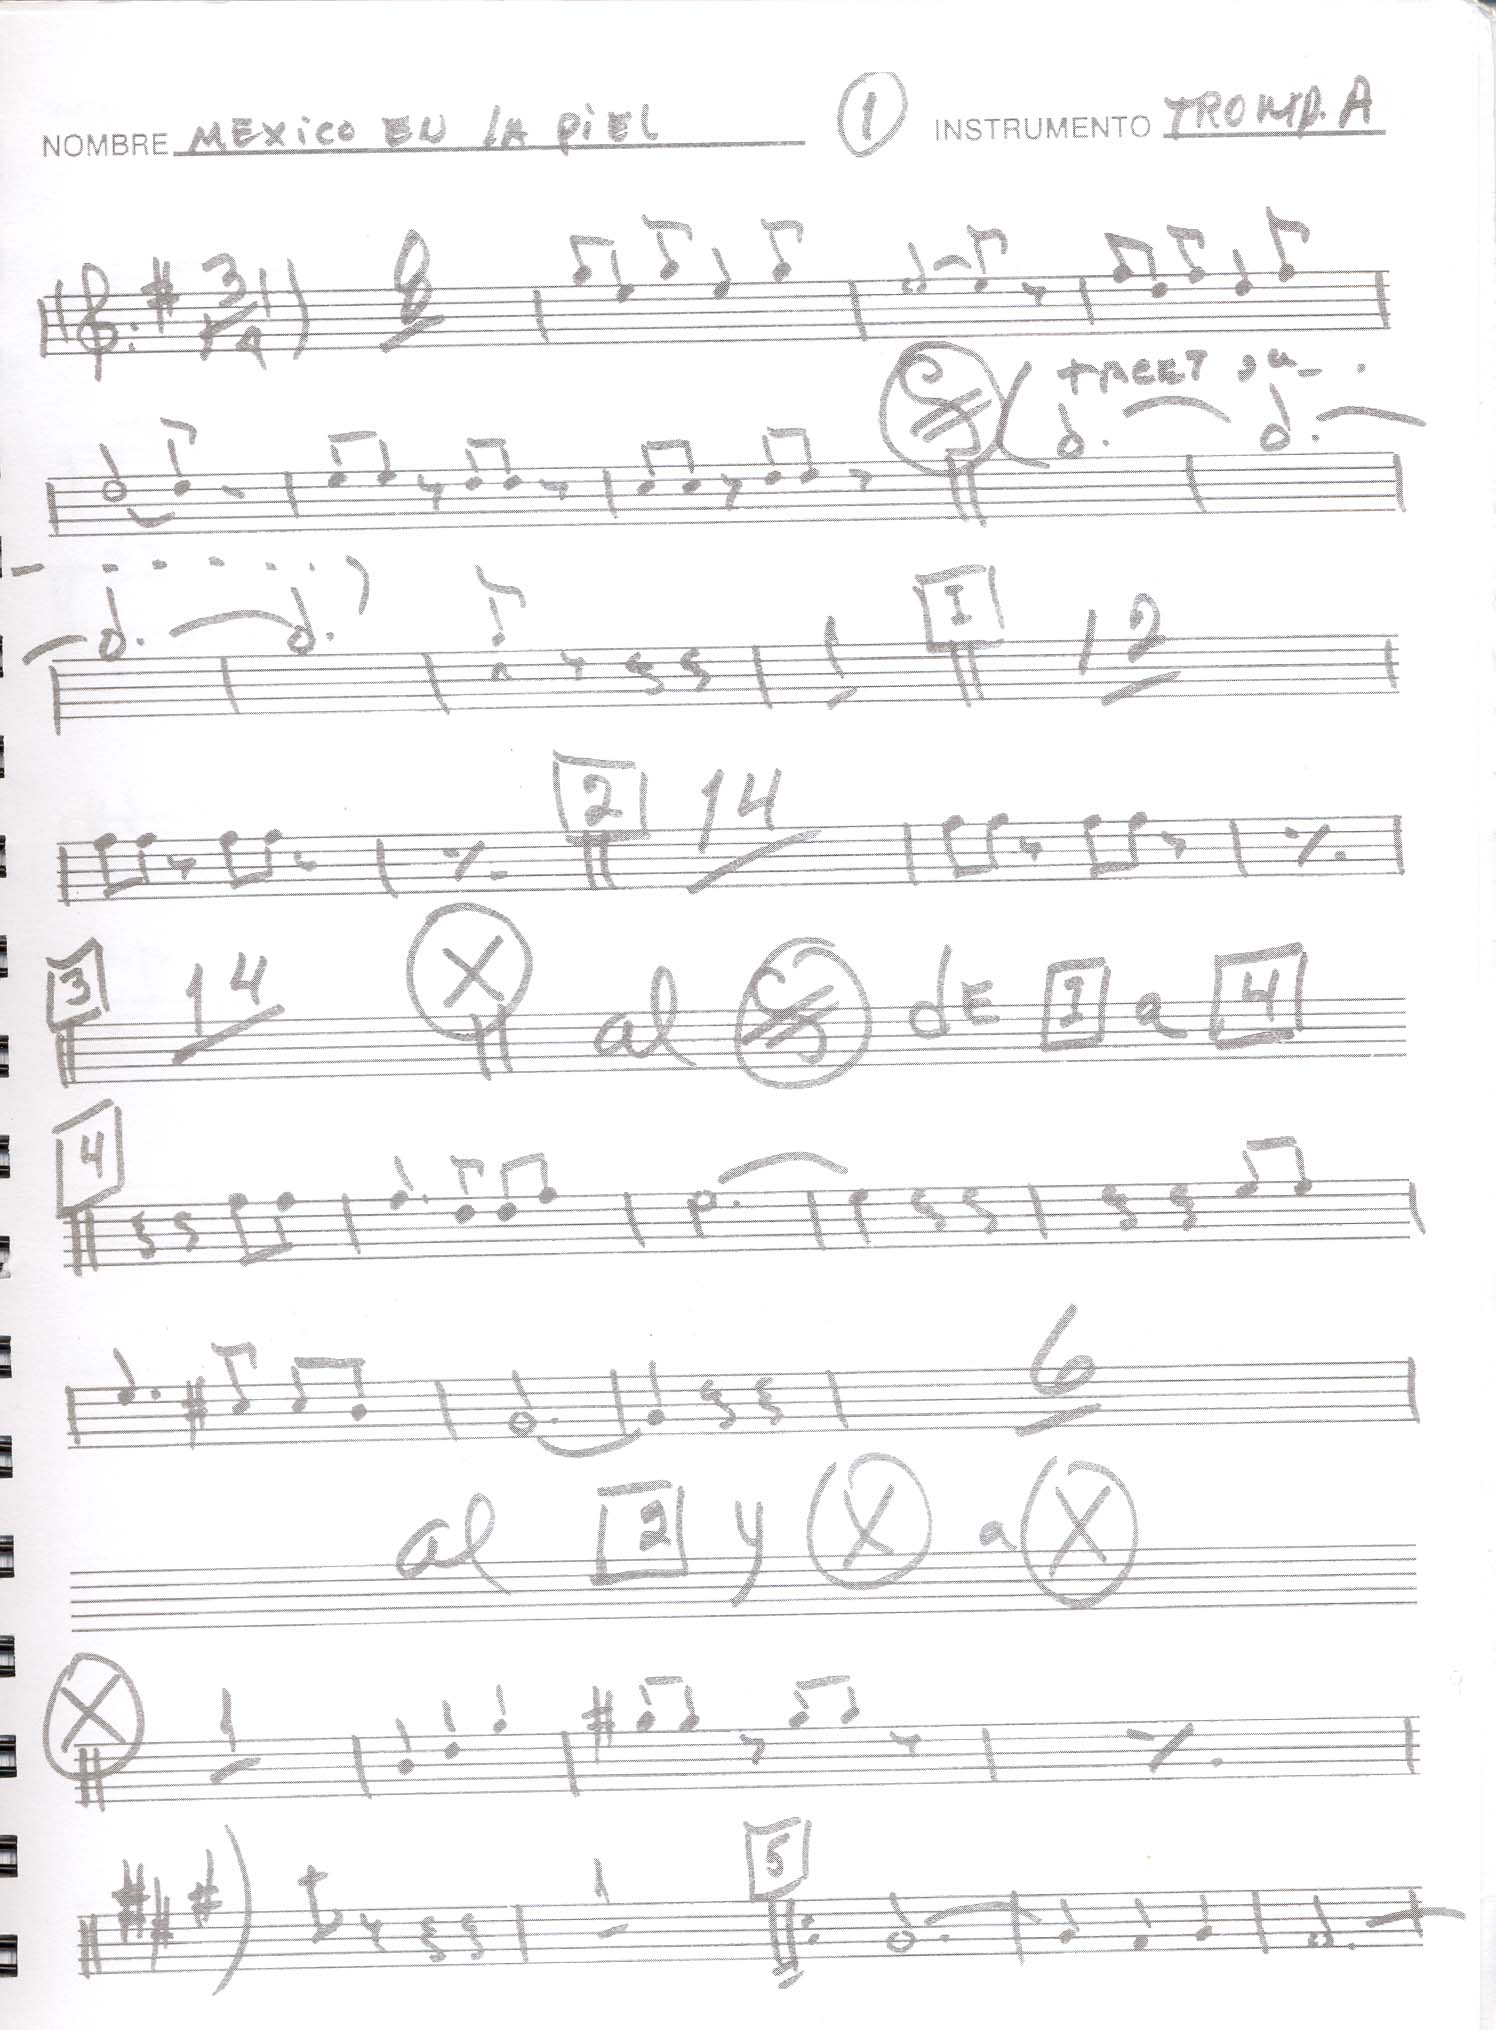 NOMBRE MEXiCO EN LA PiEL 1 INSTRUMENTO TROMP. A
3/4 8
I 12
2 14
3 14 X al dE I a 4
4
6
al 2 y X a X
X 1
1 5